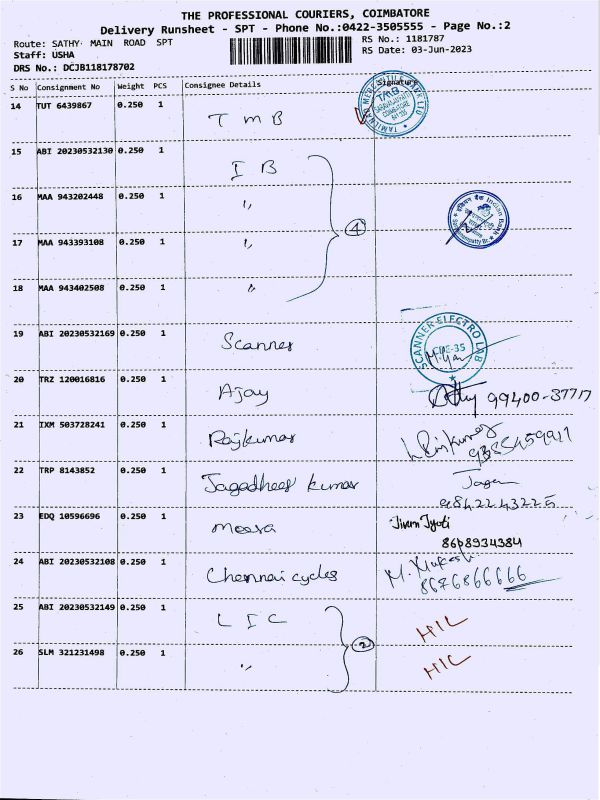 THE PROFESSIONAL COURIERS, COIMBATORE
Delivery Runsheet - SPT - Phone No.:0422-3505555 - Page No.:2
Route: SATHY MAIN ROAD SPT RS No.: 1181787
Staff: USHA RS Date: 03-Jun-2023
DRS No.: DCJB118178702
S No Consignment No Weight PCS Consignee Details Signature
14 TUT 6439867 0.250 1 TMB
TMB
COIMBATORE
15 ABI 20230532130 0.250 1 IB
16 MAA 943202448 0.250 1 "
Indian Bank
17 MAA 943393108 0.250 1 " 4
18 MAA 943402508 0.250 1 "
19 ABI 20230532169 0.250 1 Scanner SCANNER ELECTRO LAB
CBE-35
20 TRZ 120016816 0.250 1 Ajay 99400-37717
21 IXM 503728241 0.250 1 Rajkumar
22 TRP 8143852 0.250 1 Jagadhees kumar Jagan
9842243225
23 EDQ 10596696 0.250 1 meera Jivan Jyoti
8608934384
24 ABI 20230532108 0.250 1 Chennai cycles M. Mukesh
8676866666
25 ABI 20230532149 0.250 1 LIC HIL
2
26 SLM 321231498 0.250 1 " HIC